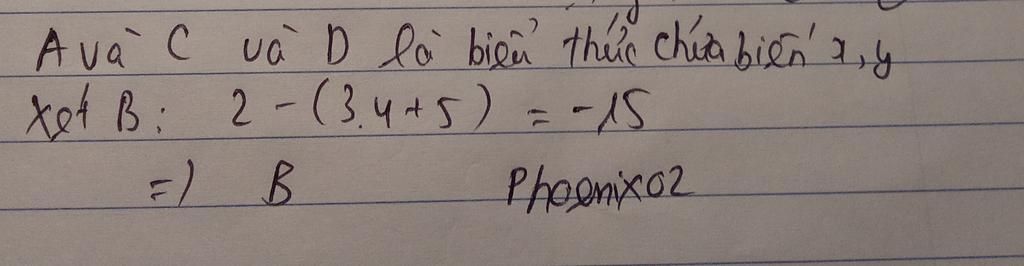 A và C và D là biểu thức chứa biến x, y
Xét B: 2 - (3.4+5) = -15
=) B Phoenix02